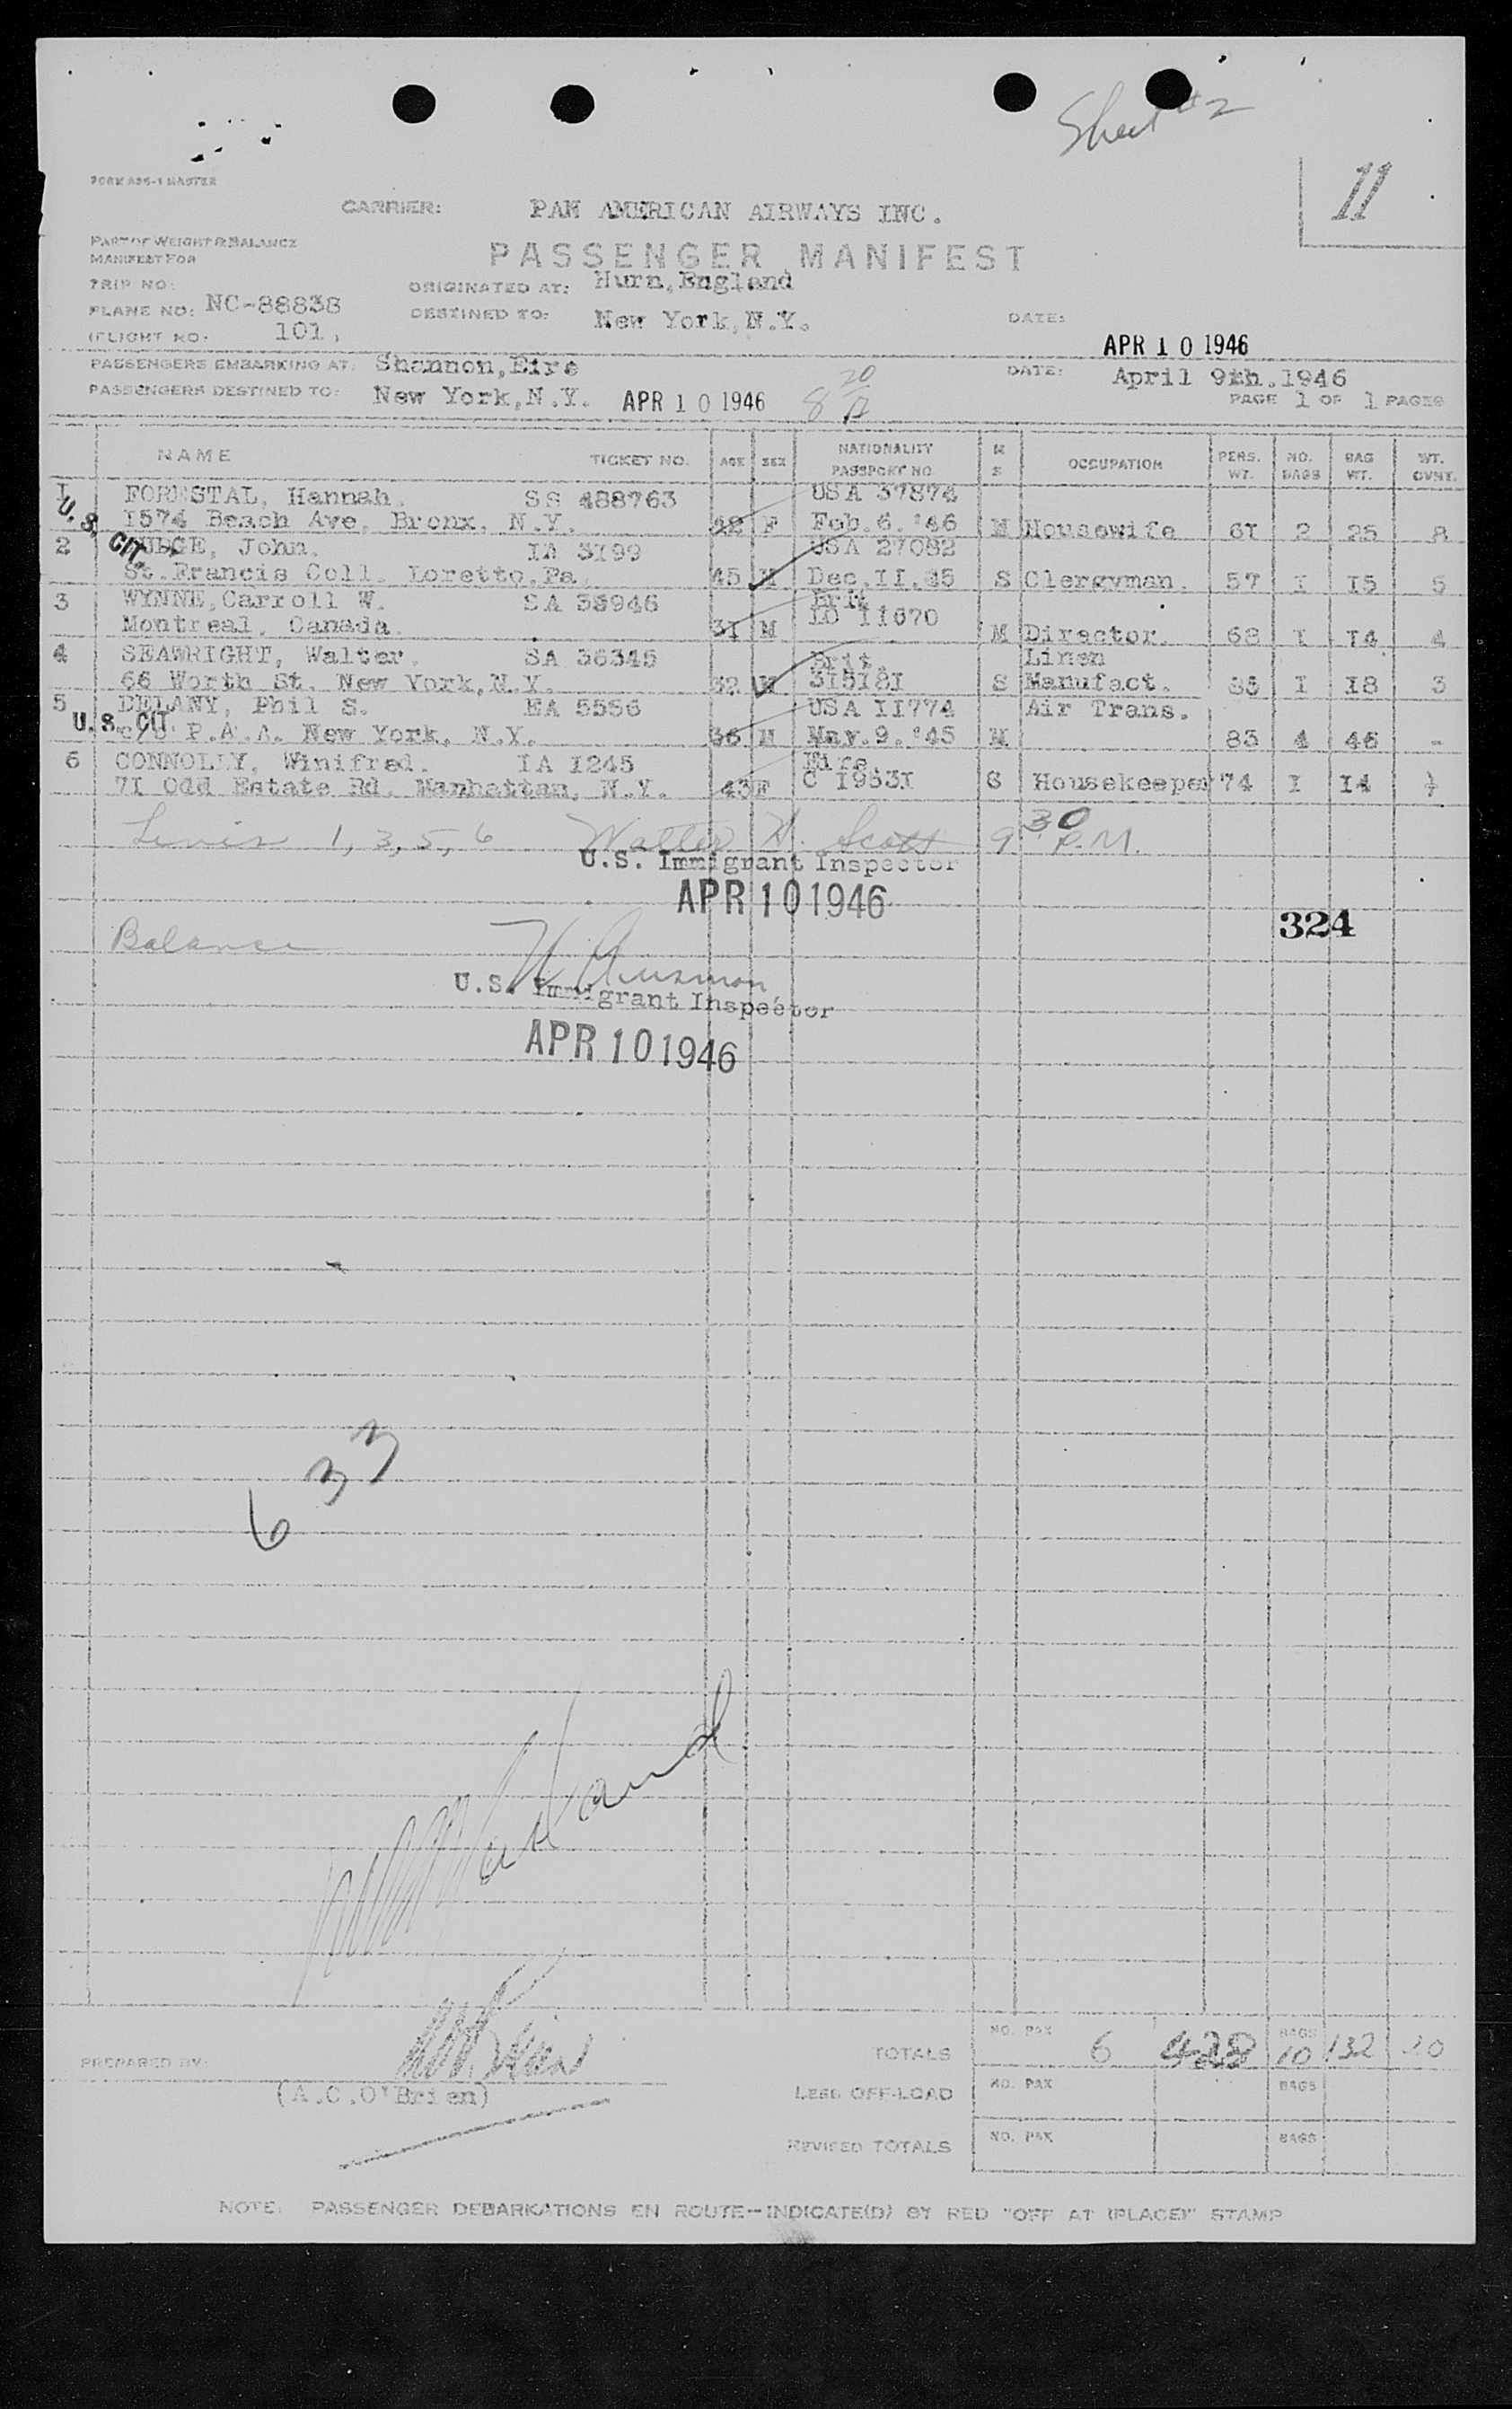 Sheet #2
11
FORM A96-1 MASTER
CARRIER: PAN AMERICAN AIRWAYS INC.
PART OF WEIGHT & BALANCE
MANIFEST FOR
PASSENGER MANIFEST
TRIP NO:
ORIGINATED AT: Hurn, England
PLANE NO: NC-88838
DESTINED TO: New York, N.Y.
DATE:
FLIGHT NO: 101,
APR 10 1946
PASSENGERS EMBARKING AT: Shannon, Eire
DATE: April 9th. 1946
PASSENGERS DESTINED TO: New York, N.Y. APR 10 1946 8 20
PAGE 1 OF 1 PAGES
NAME TICKET NO. AGE SEX NATIONALITY PASSPORT NO. M S OCCUPATION PERS. WT. NO. BAGS BAG WT. WT. OVHT.
1 FORESTAL, Hannah. SS 488763 USA 37874
U.S. CIT.
1574 Beach Ave, Bronx, N.Y. 42 F Feb.6.'46 M Housewife 61 2 25 8
2 JUDGE, John. IA 3199 USA 27082
St.Francis Coll. Loretto, Pa. 45 M Dec.11.45 S Clergyman. 57 1 15 5
3 WYNNE, Carroll W. SA 38946 Brit.
Montreal, Canada. 31 M LO 11670 M Director. 68 1 14 4
4 SEAWRIGHT, Walter. SA 36345 Brit. Linen
66 Worth St. New York, N.Y. 32 M 315181 S Manufact. 85 1 18 3
5 DELANY, Phil S. EA 5556 USA 11774 Air Trans.
U.S. CIT
c/o P.A.A. New York, N.Y. 36 M May.9.'45 M 83 4 46 -
6 CONNOLLY, Winifred. IA 1245 Eire.
71 Odd Estate Rd. Manhattan, N.Y. 43 F C 19531 S Housekeeper 74 1 14
1, 3, 5, 6 Walter H. Scott 9 30 P.M.
U.S. Immigrant Inspector
APR 10 1946
324
Balance
U.S. Immigrant Inspector
APR 10 1946
6 33
TOTALS NO. PAX 6 428 BAGS 10 132 20
PREPARED BY:
(A.C.O'Brien)
LESS OFF-LOAD NO. PAX BAGS
REVISED TOTALS NO. PAX BAGS
NOTE: PASSENGER DEBARKATIONS EN ROUTE—INDICATE(D) BY RED "OFF AT (PLACE)" STAMP